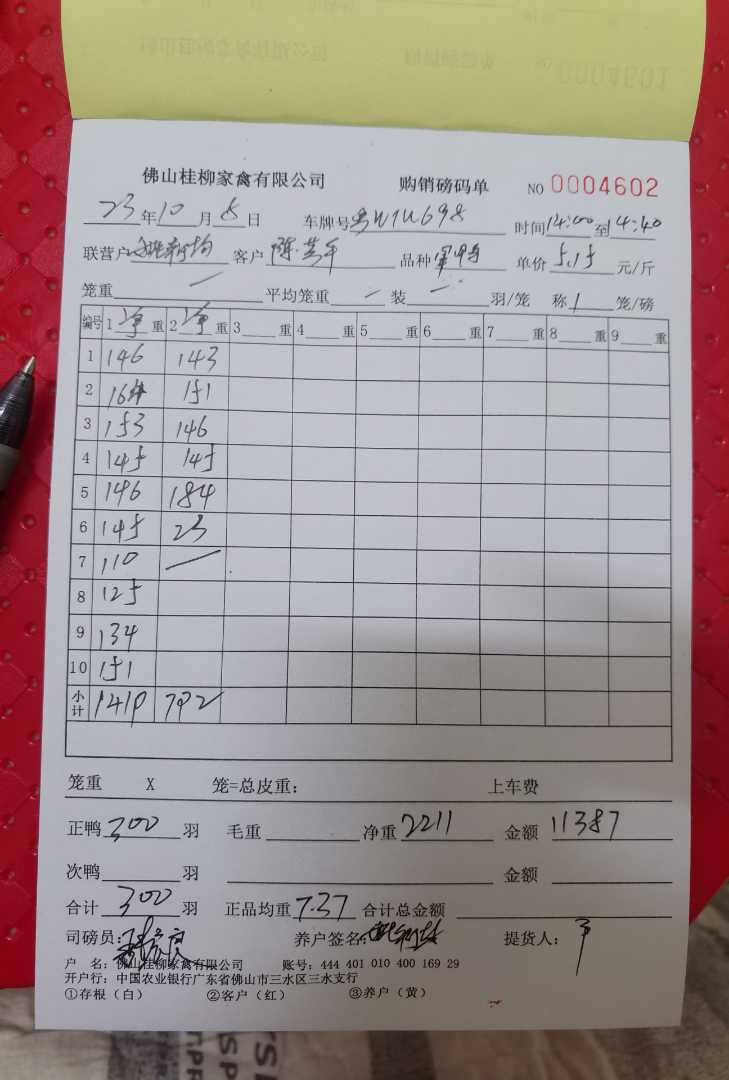 NO 0004601
佛山桂柳家禽有限公司 购销磅码单 NO 0004602
23年10月8日 车牌号 时间14:00至14:40
联营户 客户陈 品种 单价5.15元/斤
笼重— 平均笼重— 装—羽/笼 称1笼/磅
编号 1净重 2净重 3重 4重 5重 6重 7重 8重 9重
1 146 143
2 164 151
3 153 146
4 145 145
5 146 184
6 145 23
7 110 —
8 125
9 134
10 151
小计 1419 792
笼重 X 笼=总皮重: 上车费
正鸭300羽 毛重 净重2211 金额11387
次鸭 羽 金额
合计300羽 正品均重7.37 合计总金额
司磅员: 养户签名: 提货人:
户 名:佛山桂柳家禽有限公司 账号:444 401 010 400 169 29
开户行:中国农业银行广东省佛山市三水区三水支行
①存根(白) ②客户(红) ③养户(黄)